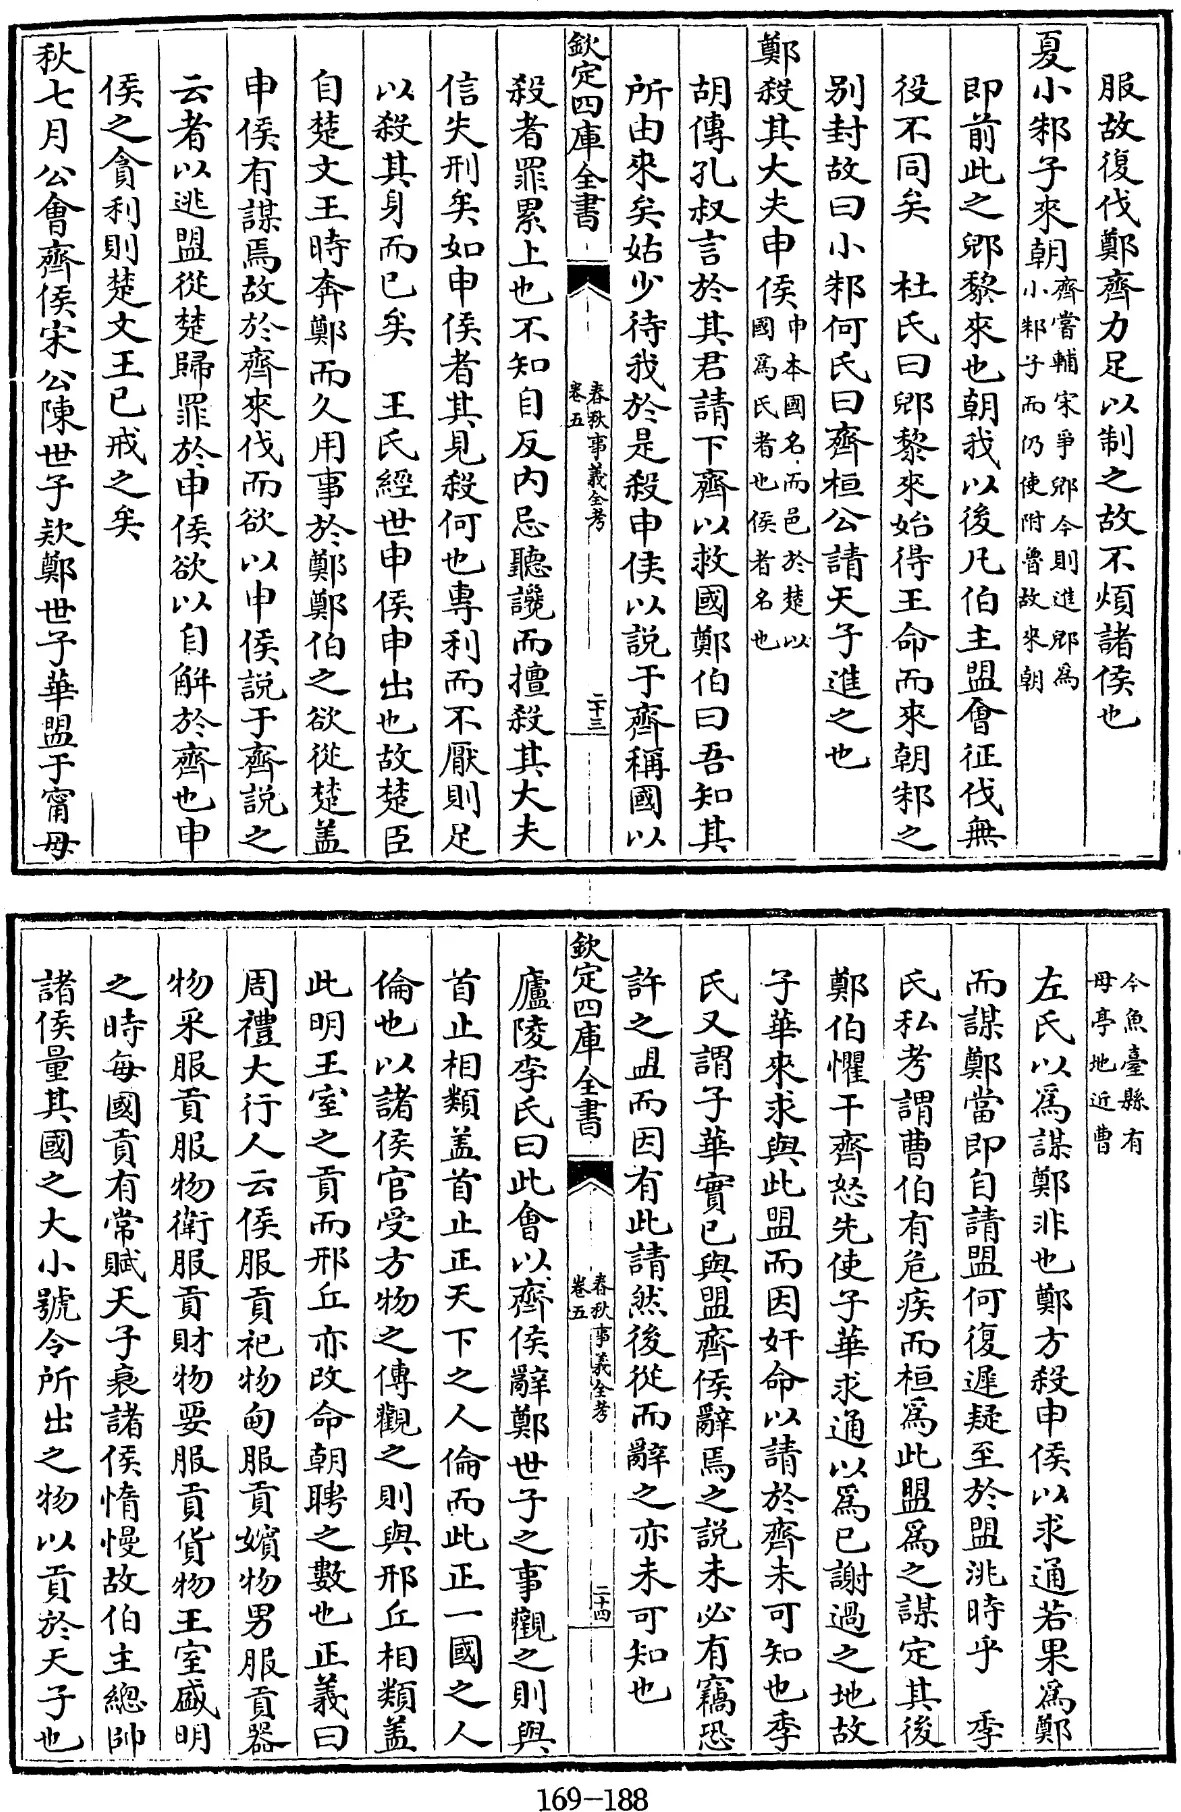 服故復伐鄭齊力足以制之故不煩諸侯也
夏小邾子來朝齊嘗輔宋爭郳今則進郳爲
小邾子而仍使附魯故來朝
即前此之郳黎來也朝我以後凡伯主盟會征伐無
役不同矣　杜氏曰郳黎來始得王命而來朝邾之
别封故曰小邾何氏曰齊桓公請天子進之也
鄭殺其大夫申侯申本國名而邑於楚以
國爲氏者也侯者名也
胡傳孔叔言於其君請下齊以救國鄭伯曰吾知其
所由來矣姑少待我於是殺申侯以説于齊稱國以
欽定四庫全書
春秋事義全考
卷五
二十三
殺者罪累上也不知自反内忌聽讒而擅殺其大夫
信失刑矣如申侯者其見殺何也專利而不厭則足
以殺其身而已矣　王氏經世申侯申出也故楚臣
自楚文王時奔鄭而久用事於鄭鄭伯之欲從楚盖
申侯有謀焉故於齊來伐而欲以申侯説于齊説之
云者以逃盟從楚歸罪於申侯欲以自解於齊也申
侯之貪利則楚文王已戒之矣
秋七月公會齊侯宋公陳世子款鄭世子華盟于甯母
今魚臺縣有
母亭地近曹
左氏以爲謀鄭非也鄭方殺申侯以求通若果爲鄭
而謀鄭當即自請盟何復遲疑至於盟洮時乎　季
氏私考謂曹伯有危疾而桓爲此盟爲之謀定其後
鄭伯懼干齊怒先使子華求通以爲已謝過之地故
子華來求與此盟而因奸命以請於齊未可知也季
氏又謂子華實已與盟齊侯辭焉之説未必有竊恐
許之盟而因有此請然後從而辭之亦未可知也
欽定四庫全書
春秋事義全考
卷五
二十四
廬陵李氏曰此會以齊侯辭鄭世子之事觀之則與
首止相類盖首止正天下之人倫而此正一國之人
倫也以諸侯官受方物之傳觀之則與邢丘相類盖
此明王室之貢而邢丘亦改命朝聘之數也正義曰
周禮大行人云侯服貢祀物甸服貢嬪物男服貢器
物采服貢服物衛服貢財物要服貢貨物王室盛明
之時每國貢有常賦天子衰諸侯惰慢故伯主總帥
諸侯量其國之大小號令所出之物以貢於天子也
169-188